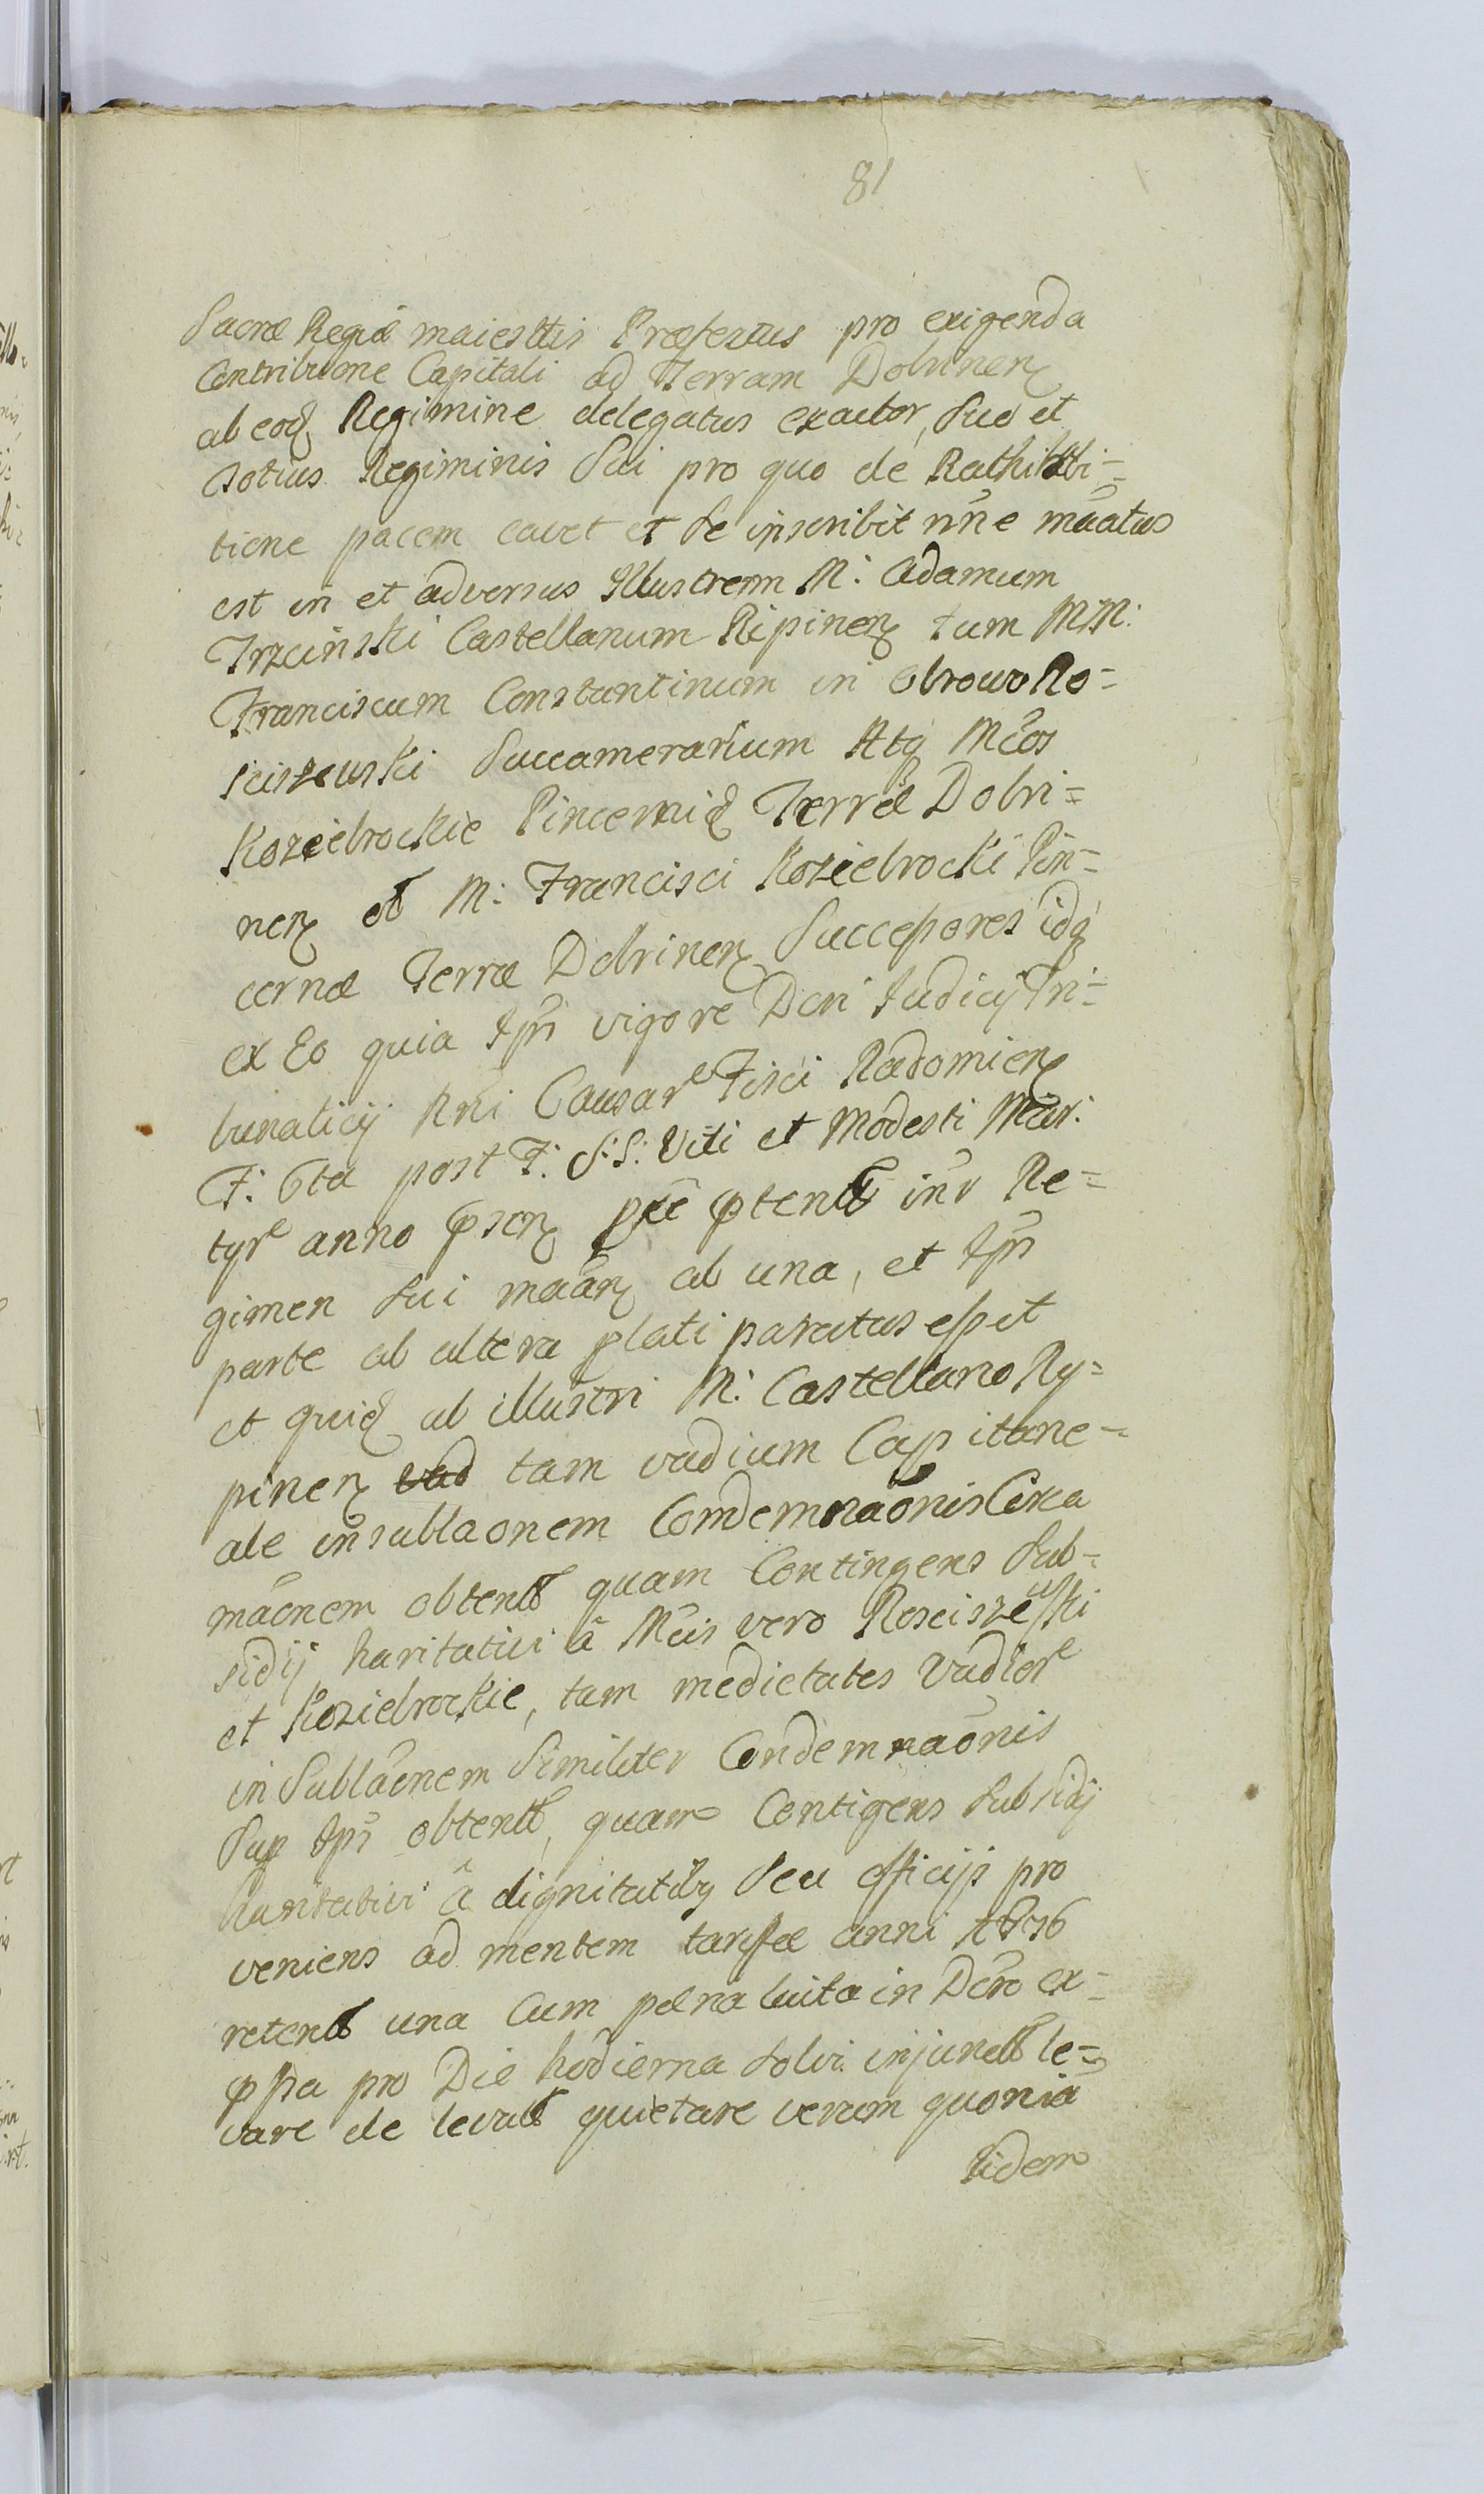 81
Sacræ Regiæ maiesttis Præfectus pro exigenda
Contribuone Capitali ad Terram Dobrinen
ab eod Regimine delegatus exactor, Suo et
Totius Regiminis Sui pro quo de Rathihbi=
tione pacem cavet et se inscribit nñe mãatus
est in et adversus Illustrem M: Adamum
Trzcinski Castellanum Ripinen tum MM:
Franciscum Constantinum in Obrowo Ro=
sciszewski Succamerarium Atq Mcos
Koziebrockie Pincernid Terræ Dobri=
nen et M: Francisci Koziebrocki Pin=
cernæ Terræ Dobrinen Successores idq
ex Eo quia Ipsi vigore Dcri Iudicij Tri=
bunalicij Rni Causar Fisci Radomien
F. 6ta post F. S.S. Viti et Modesti Mar:
tyr anno psen ptent inr Re=
gimen Sui maan ab una, et Ipsi
parte ab altera plati paratus esset
et quid ab illustri M: Castellano Ry=
pinen vad tam vadium Capitane=
ale in sublaonem Condemnaõnis Circa
mãonem obtent quam Contingens Sub=
sidij haritativi â Mcis vero Rosciszewski
et Koziebrockie, tam medietates Vadior
in Sublãonem Similiter Condemnaõnis
Sup Ipsi obtent, quam Contigens Subsidij
haritativi â dignitatibq Seu officijs pro
veniens ad mentem tariffæ anni 1676
retent una Cum pæna luita in Dcro ex=
pssa pro Die hodierna solvi injunct le=
vare de levatt quietare verum quoniã
Iidem